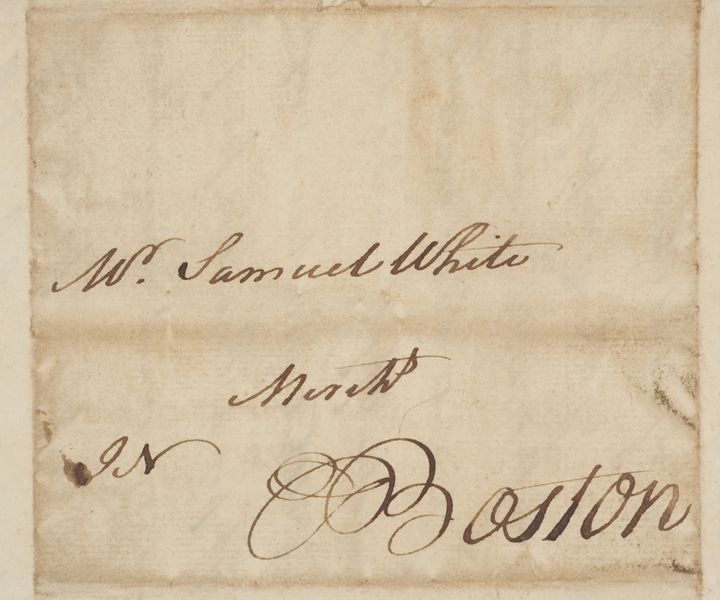 Mr. Samuel White
Mercht
IN
Boston